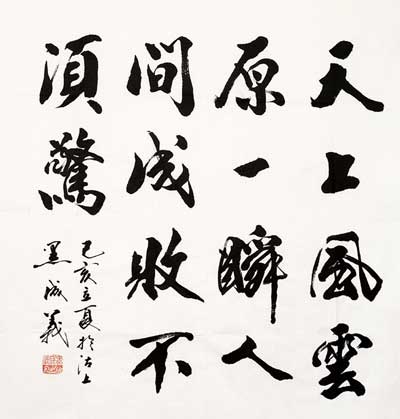 天上風雲
原一瞬人
間成敗不
須驚
己亥立夏於沽上
成義